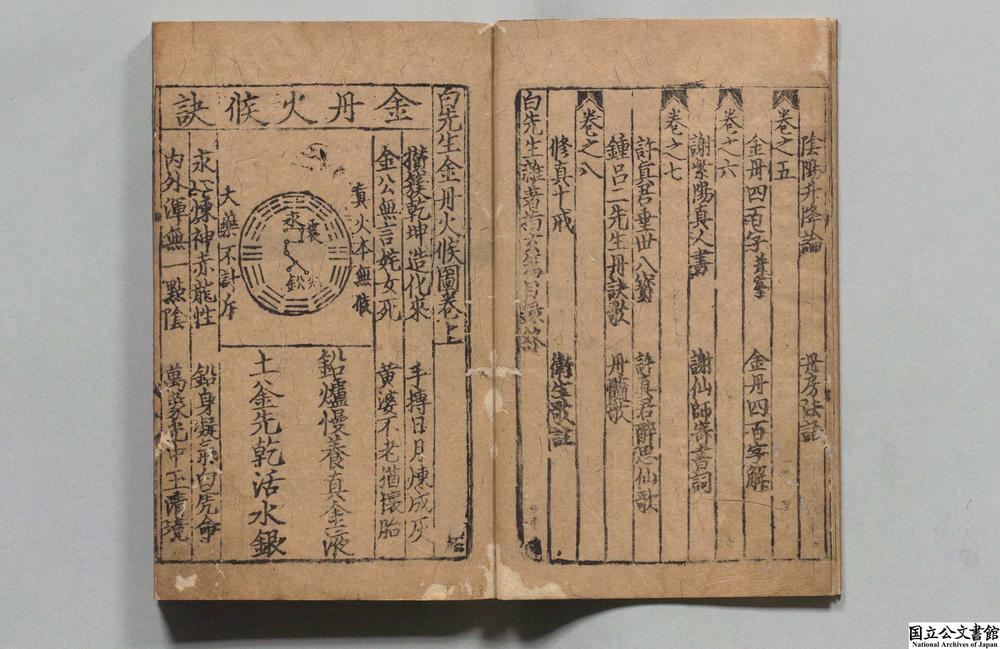 陰陽升降論　丹房法語
卷之五
金丹四百字　金丹四百字解
卷之六
謝紫陽真人書　謝仙師寄書詞
卷之七
許真君垂世八寶　許真君醉思仙歌
鍾呂二先生丹訣歌　丹髓歌
卷之八
修真十戒　衛生歌註
白先生雜著指玄篇目録
白先生金丹火候圖卷上
金丹火候訣
攅簇乾坤造化來　手摶日月煉成灰
金公無言姹女死　黄婆不老猶懷胎
真火本無候
汞
鉛
大藥不計斤
鉛爐慢養真金液
土釜先乾活水銀
煉神赤龍性　鉛身凝氣白虎命
内外渾無一㸃陰　萬象光中玉清境
国立公文書館
National Archives of Japan